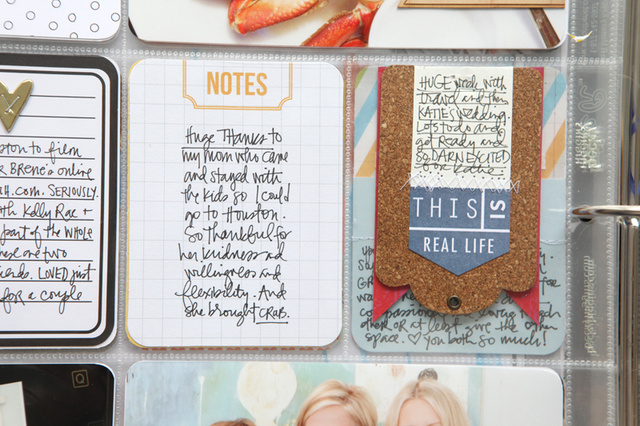 ston to film
r BRENE's online
AH.COM. SERIOUSLY.
th Kelly Rae +
part of the WHOLE
ese are two
iends. LOVED just
for a couple
NOTES
Huge Thanks to
my mom who came
and stayed with
the kids so I could
go to Houston.
So thankful for
her kindness and
willingness and
flexibility. And
she brought CRAB.
HUGE week with
travel and then
KATIE'S wedding.
Lots to do and
get Ready and
so DARN EXCITED
for Katie.
THIS IS
REAL LIFE
for
was
compassion
other or at least give the other
space. ♡ you both so much!
Q